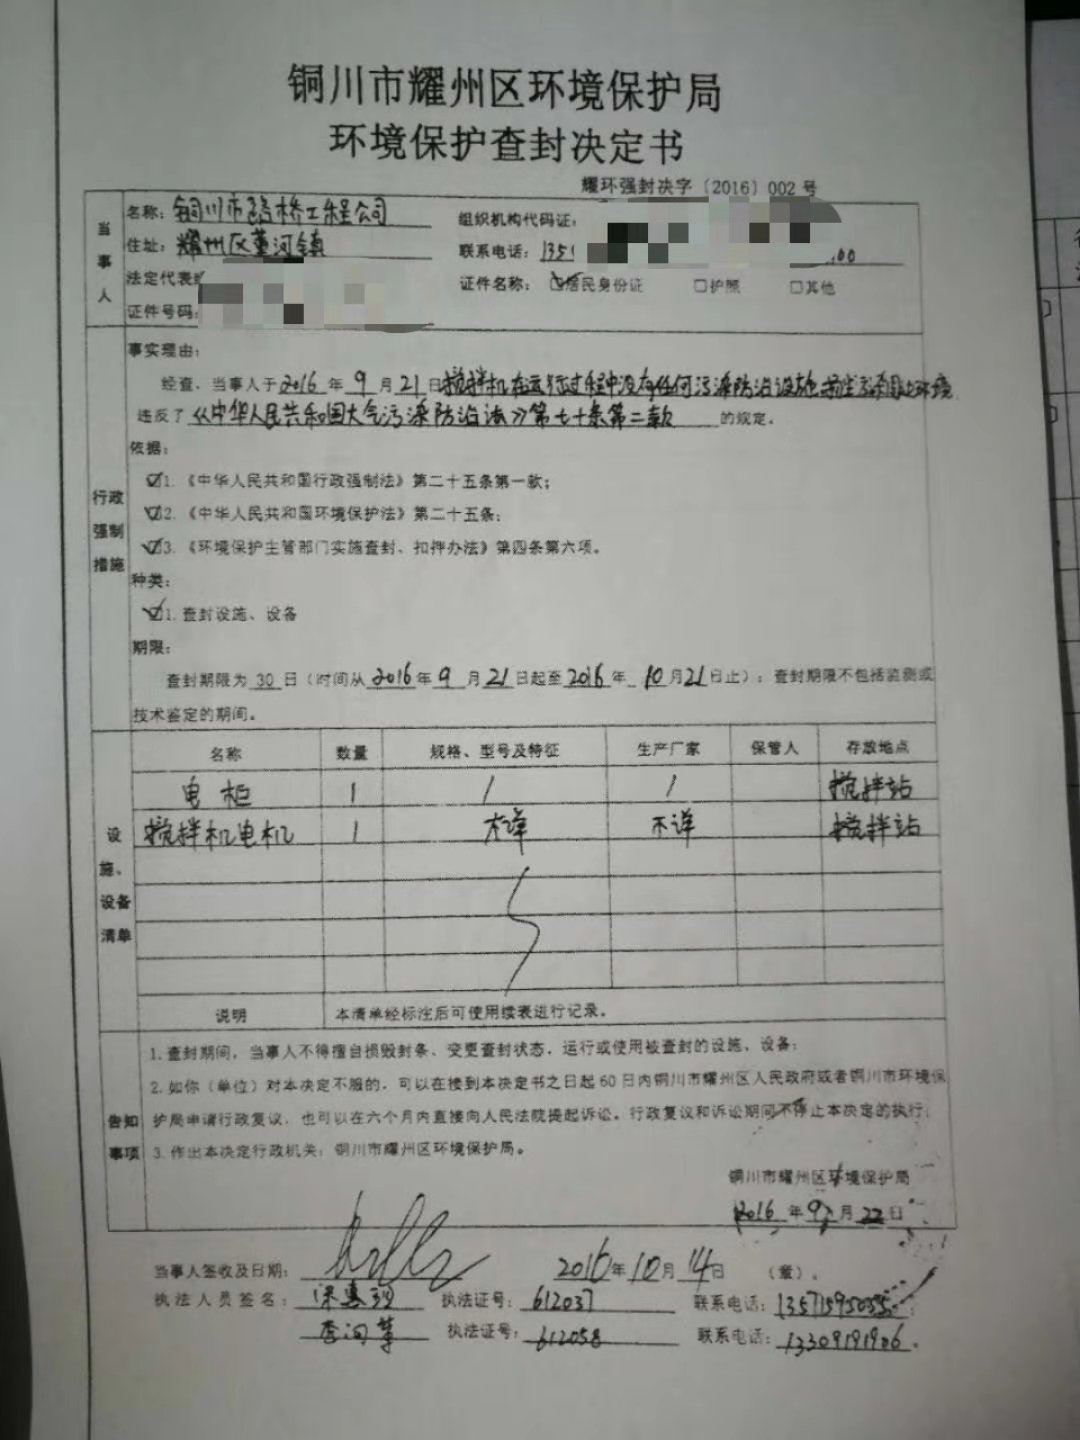 铜川市耀州区环境保护局
环境保护查封决定书
耀环强封决字〔2016〕002号
当事人
名称：铜川市路桥工程公司
组织机构代码证：
住址：耀州区董河镇
联系电话：135 00
法定代表
证件名称：☑居民身份证 □护照 □其他
证件号码：
行政强制措施
事实理由：
经查，当事人于2016年9月21日搅拌机在运行过程中没有任何污染防治设施,扬尘污染周边环境
违反了《中华人民共和国大气污染防治法》第七十条第二款的规定。
依据：
☑1.《中华人民共和国行政强制法》第二十五条第一款；
☑2.《中华人民共和国环境保护法》第二十五条；
☑3.《环境保护主管部门实施查封、扣押办法》第四条第六项。
种类：
☑1.查封设施、设备
期限：
查封期限为30日（时间从2016年9月21日起至2016年10月21日止）；查封期限不包括监测或
技术鉴定的期间。
设施、设备清单
名称 数量 规格、型号及特征 生产厂家 保管人 存放地点
电柜 1 / / 搅拌站
搅拌机电机 1 不详 不详 搅拌站
说明 本清单经标注后可使用续表进行记录。
告知事项
1.查封期间，当事人不得擅自损毁封条、变更查封状态，运行或使用被查封的设施、设备；
2.如你（单位）对本决定不服的，可以在接到本决定书之日起60日内铜川市耀州区人民政府或者铜川市环境保
护局申请行政复议，也可以在六个月内直接向人民法院提起诉讼。行政复议和诉讼期间不停止本决定的执行；
3.作出本决定行政机关：铜川市耀州区环境保护局。
铜川市耀州区环境保护局
2016年9月22日
当事人签收及日期： 2016年10月14日 （章）。
执法人员签名： 执法证号：612037 联系电话：13571595035
执法证号：612058 联系电话：13309191906